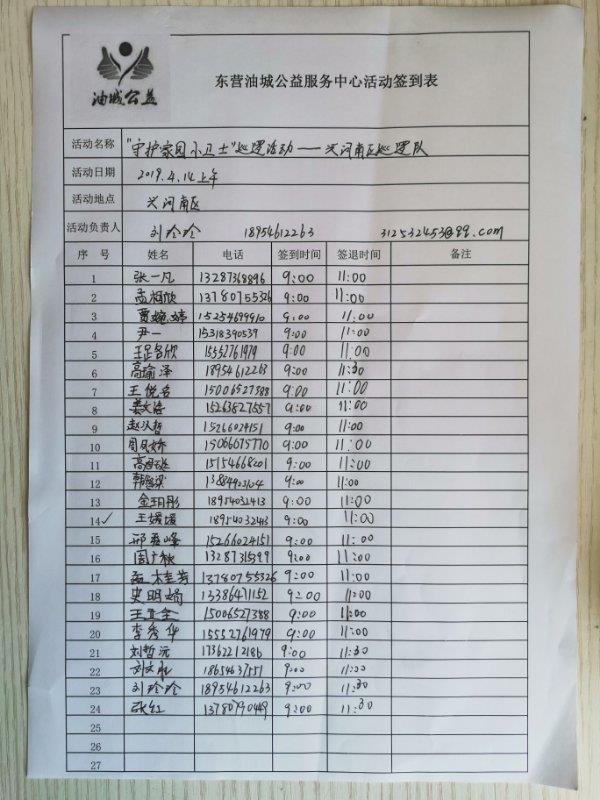 油城公益
东营油城公益服务中心活动签到表
活动名称 "守护家园小卫士"巡逻活动——兴河南区巡逻队
活动日期 2019.4.14上午
活动地点 兴河南区
活动负责人 刘玲玲 18954612263 312532453@qq.com
序 号 姓名 电话 签到时间 签退时间 备注
1 张一凡 13287368896 9:00 11:00
2 孟相欣 13780755326 9:00 11:00
3 贾婉婷 15254699910 9:00 11:00
4 尹一 15318390539 9:00 11:00
5 15552761979 9:00 11:00
6 高瑜泽 18954612263 9:00 11:30
7 王悦名 15006527388 9:00 11:00
8 15263827557 9:00 11:00
9 15266024151 9:00 11:00
10 周凤娇 15066075770 9:00 11:00
11 15154668201 9:00 11:00
12 9:00 11:00
13 金玥彤 18954032413 9:00 11:00
14✓ 王媛媛 9:00 11:00
15 邢秀峰 15266024151 9:00 11:00
16 周广秋 13287315399 9:00 11:00
17 孟桂芳 13780755326 9:00 11:00
18 史明娟 13386471152 9:00 11:00
19 15006527388 9:00 11:00
20 李秀华 15552761979 9:00 11:00
21 刘哲元 17362212186 9:00 11:30
22 18654637551 9:00 11:00
23 刘玲玲 18954612263 9:00 11:30
24 张红 13780790449 9:00 11:30
25
26
27